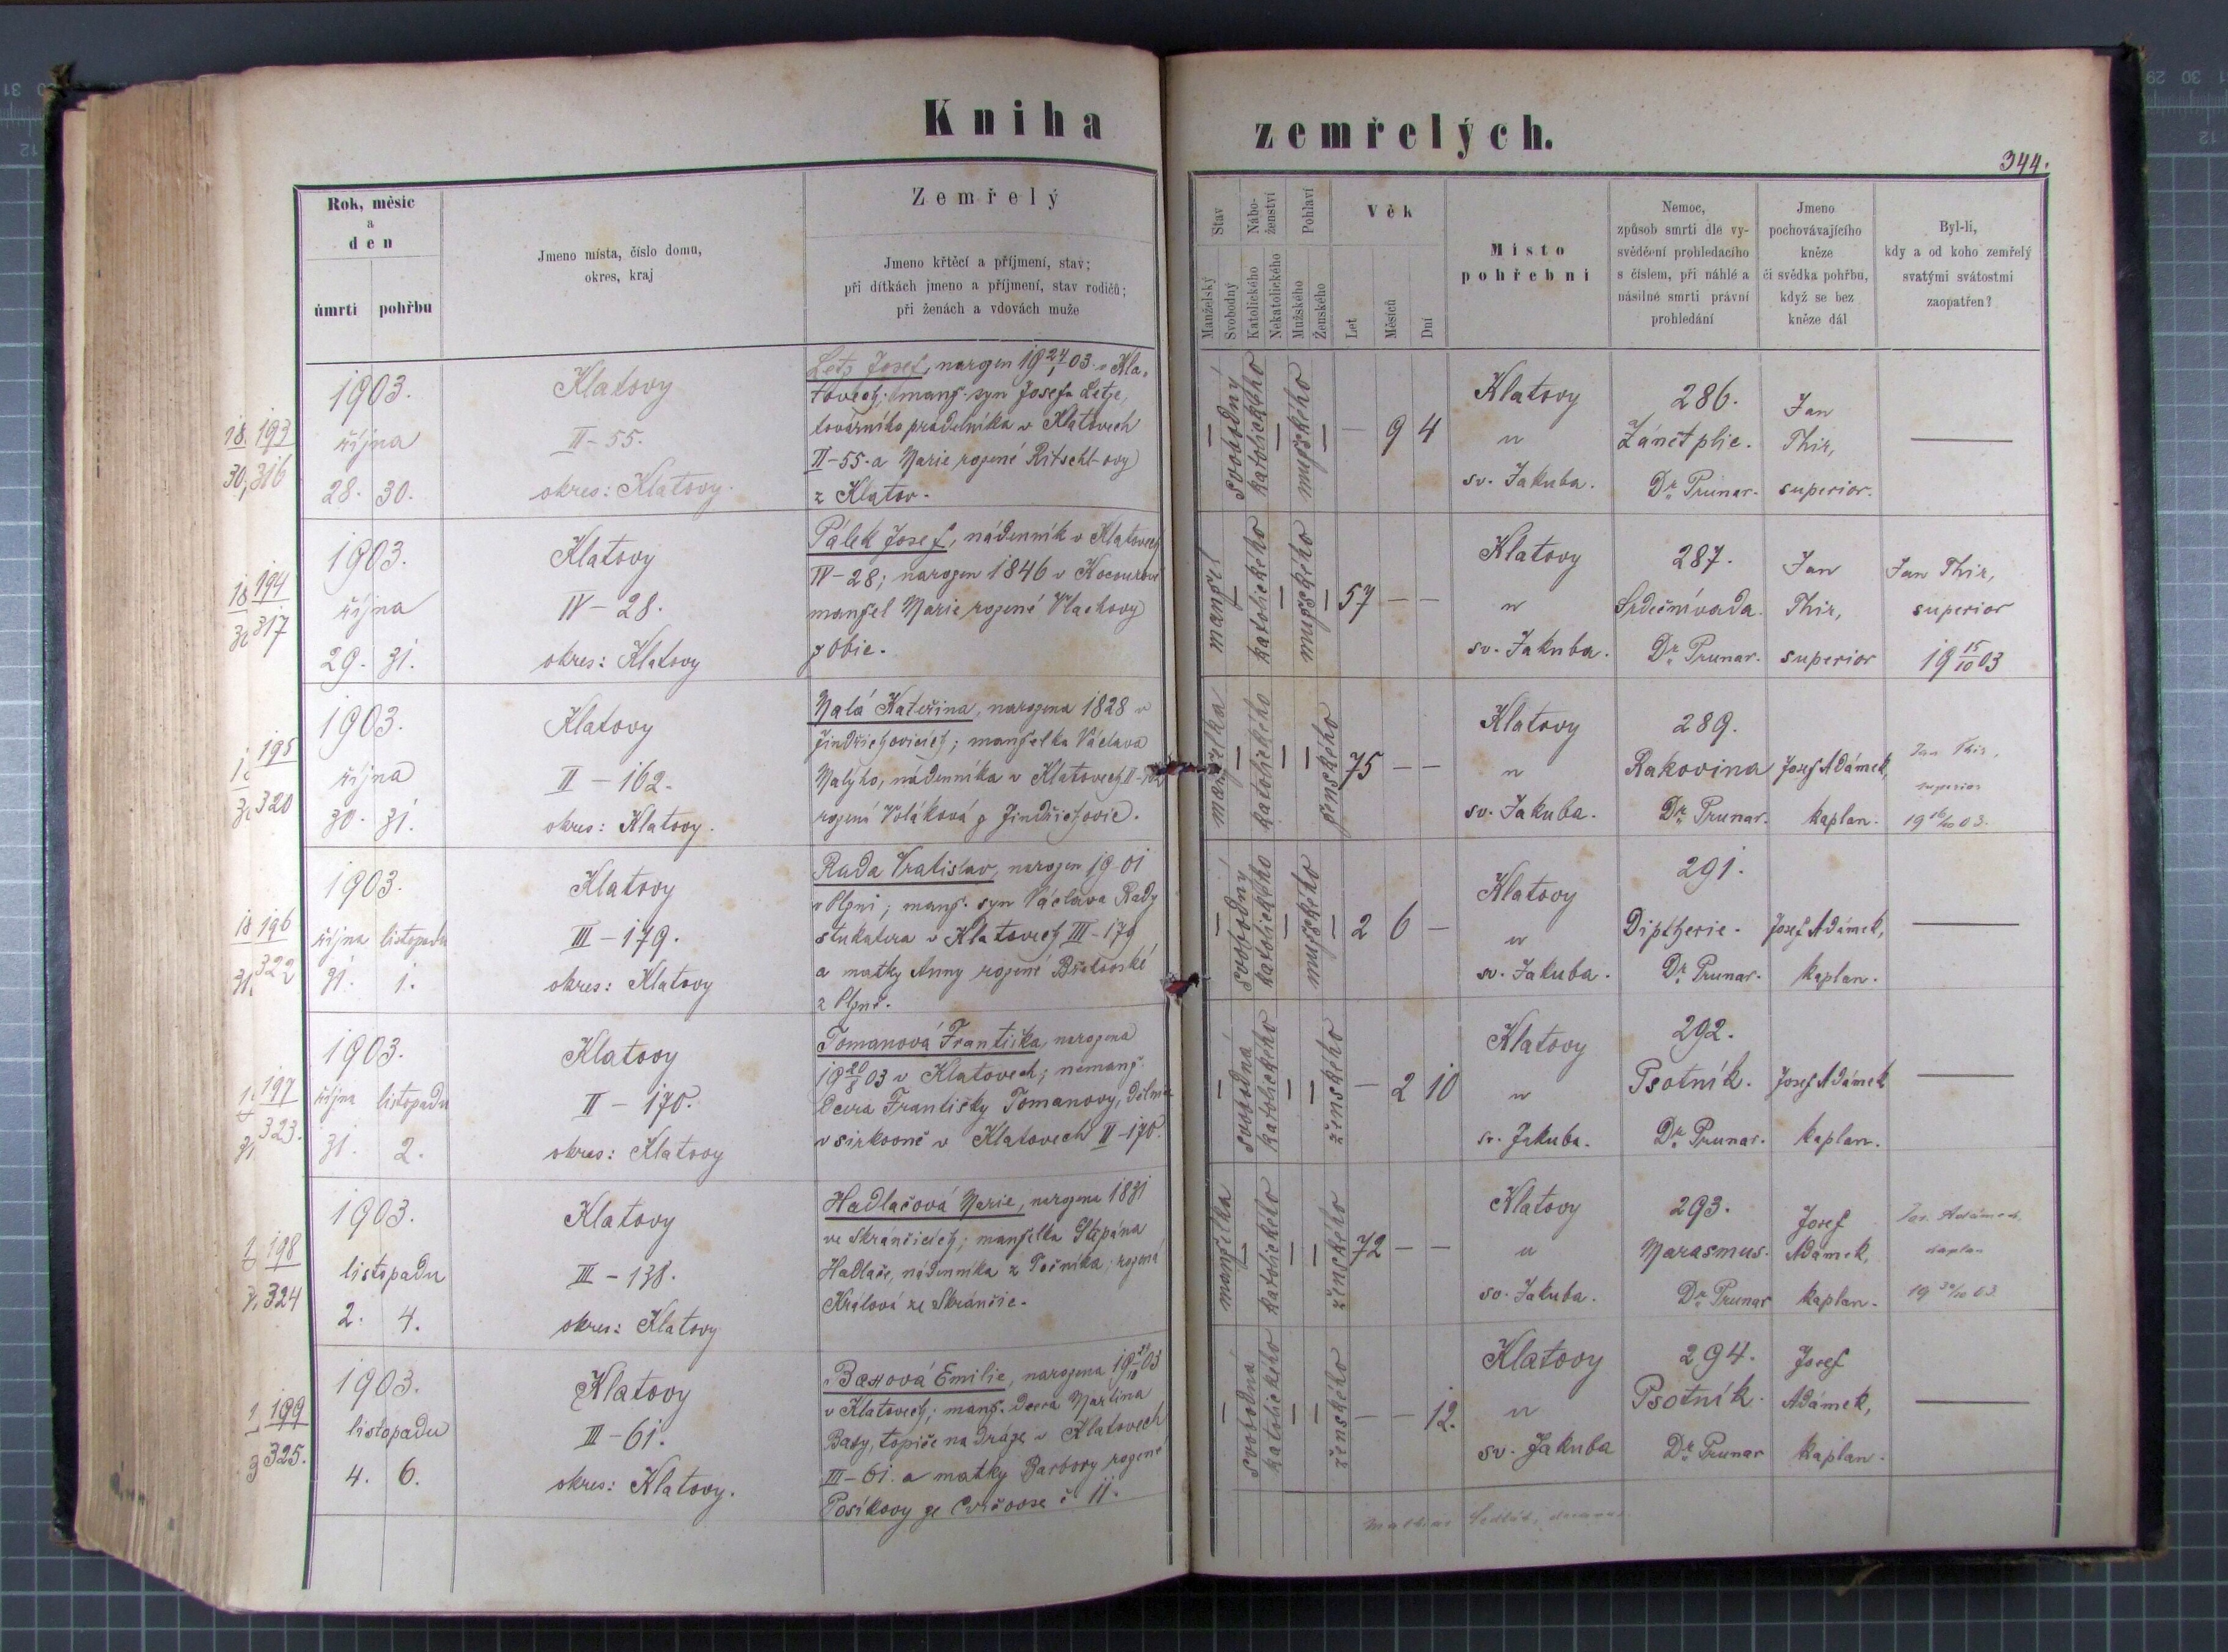 Kniha zemřelých.
344.
Rok, měsíc
a
den
úmrtí pohřbu
Jmeno místa, číslo domu,
okres, kraj
Zemřelý
Jmeno křtěcí a příjmení, stav;
při dítkách jmeno a příjmení, stav rodičů;
při ženách a vdovách muže
Stav
Manželský
Svobodný
Nábo-
ženství
Katolického
Nekatolického
Pohlaví
Mužského
Ženského
Věk
Let
Měsíců
Dní
Místo
pohřební
Nemoc,
způsob smrti dle vy-
svědčení prohledacího
s číslem, při náhlé a
násilné smrti právní
prohledání
Jmeno
pochovávajícího
kněze
či svědka pohřbu,
když se bez
kněze dál
Byl-li,
kdy a od koho zemřelý
svatými svátostmi
zaopatřen?
193
316
1903.
října
28. 30.
Klatovy
II-55.
okres: Klatovy.
Letz Josef, narozen 19 24/1 03 v Kla-
tovech; manž. syn Josefa Letze,
továrního pradelníka v Klatovech
II-55. a Marie rozené Ritschl-ovy
z Klatov.
svobodný
katolického
mužského
— 9 4
Klatovy
u
sv. Jakuba.
286.
Zánět plic.
Dr. Prunar.
Jan
Thir,
superior.
194
317
1903.
října
29. 31.
Klatovy
IV-28.
okres: Klatovy
Pálek Josef, nádenník v Klatovech
IV-28; narozen 1846 v
manžel Marie rozené Vlachovy
z Obic.
manžel
katolického
mužského
57 — —
Klatovy
u
sv. Jakuba.
287.
Srdeční vada.
Dr. Prunar.
Jan
Thir,
superior
Jan Thir,
superior
19 15/10 03
195
320
1903.
října
30. 31.
Klatovy
II-162.
okres: Klatovy.
Malá Kateřina, narozena 1828 v
Jindřichovicích; manželka Václava
Malýho, nádenníka v Klatovech
rozená Voláková z Jindřichovic.
manželka
katolického
ženského
75 — —
Klatovy
u
sv. Jakuba.
289.
Rakovina
Dr. Prunar.
Josef Adámek,
kaplan.
Jan Thir,
superior
19 16/10 03.
196
322
1903.
října listopadu
31. 1.
Klatovy
III-179.
okres: Klatovy
Rada Vratislav, narozen 1901
v Plzni; manž. syn Václava Rady
stukatera v Klatovech III-179
a matky Anny rozené
z Plzně.
svobodný
katolického
mužského
2 6 —
Klatovy
u
sv. Jakuba.
291.
Diptherie.
Dr. Prunar.
Josef Adámek,
kaplan.
197
323.
1903.
října listopadu
31. 2.
Klatovy
II-170.
okres: Klatovy
Tomanová Františka, narozena
19 20/8 03 v Klatovech; nemanž.
dcera Františky Tomanovy, dělnice
v sirkovně v Klatovech II-170.
svobodná
katolického
ženského
— 2 10
Klatovy
u
sv. Jakuba.
292.
Psotník.
Dr. Prunar.
Josef Adámek
kaplan.
198
324
1903.
listopadu
2. 4.
Klatovy
III-138.
okres: Klatovy
Hadlačová Marie, narozena 1831
ve Skránčicích; manželka Štěpána
Hadlače, nádenníka z Točníka; rozená
Králová ze Skránčic.
manželka
katolického
ženského
72 — —
Klatovy
u
sv. Jakuba.
293.
Marasmus.
Dr. Prunar
Josef
Adámek,
kaplan.
Jos. Adámek,
kaplan
19 30/10 03.
199
325.
1903.
listopadu
4. 6.
Klatovy
III-61.
okres: Klatovy.
Emilie, narozena
v Klatovech; manž. dcera Martina
topiče na dráze v Klatovech
III-61. a matky Barbory rozené
Posíkovy ze č. 11.
svobodná
katolického
ženského
— — 12.
Klatovy
u
sv. Jakuba
294.
Psotník.
Dr. Prunar
Josef
Adámek,
kaplan.